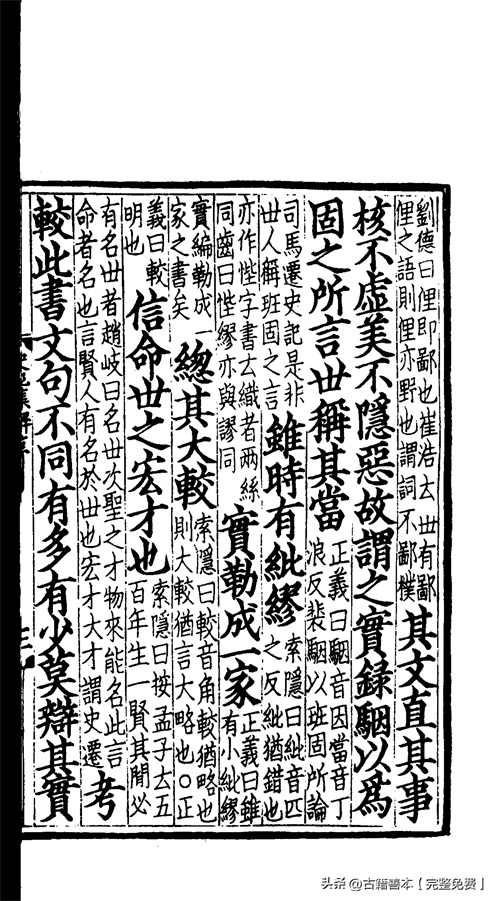 劉德曰俚即鄙也崔浩去世有鄙
俚之語則俚亦野也謂詞不鄙樸
其文直其事
核不虛美不隱惡故謂之實録駰以爲
固之所言世稱其當
正義曰駰音因當音丁
浪反裴駰以班固所論
司馬遷史記是非
世人稱班固之言
雖時有紕繆
索隱曰紕音匹
之反紕猶錯也
亦作悂字書去織者兩絲
同齒曰悂繆亦與謬同
實勒成一家
正義曰雖
有小紕繆
實編勒成一
家之書矣
緫其大較
索隱曰較音角較猶略也
則大較猶言大略也○正
義曰較
明也
信命世之宏才也
索隱曰按孟子去五
百年生一賢其閒必
有名世者趙岐曰名世次聖之才物來能名此言
命者名也言賢人有名於世也宏才大才謂史遷
考
較此書文句不同有多有少莫辯其實
头条@古籍善本【完整免费】